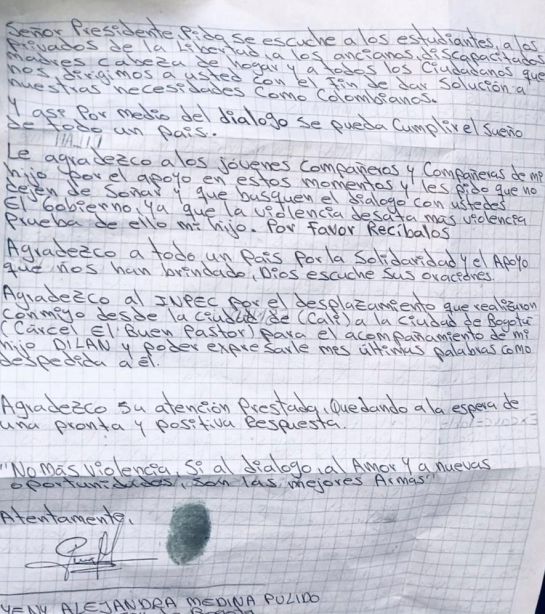 Señor Presidente Pido se escuche a los estudiantes, a los
privados de la libertad, a los ancianos, discapacitados
madres cabeza de hogar y a todos los Ciudadanos que
nos dirigimos a usted con el Fin de dar Solución a
nuestras necesidades Como Colombianos.
Y así Por medio del dialogo se pueda Cumplir el Sueño
de todo un país.
Le agradezco a los jóvenes Compañeros y Compañeras de mi
hijo por el apoyo en estos momentos y les pido que no
dejen de Soñar y que busquen el dialogo con ustedes
El Gobierno, ya que la violencia desata mas violencia
Prueba de ello mi hijo. Por Favor Recíbalos
Agradezco a todo un País Por la Solidaridad y el Apoyo
que nos han brindado, Dios escuche Sus oraciones.
Agradezco al INPEC por el desplazamiento que realizaron
conmigo desde la ciudad de (Cali) a la Ciudad de Bogotá
(Cárcel El Buen Pastor) para el acompañamiento de mi
hijo DILAN y poder expresarle mis últimas palabras como
despedida a él.
Agradezco su atención Prestada, Quedando a la espera de
una pronta y positiva Respuesta.
"No mas violencia, Si al dialogo, al Amor y a nuevas
oportunidades, son las mejores Armas"
Atentamente,
YENY ALEJANDRA MEDINA PULIDO